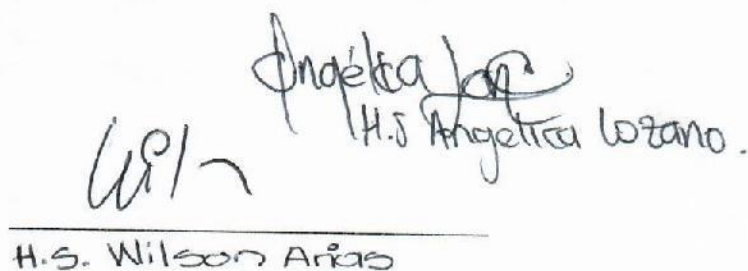 Angélica Loz
H.S Angelica Lozano.
Wils
H.S. Wilson Arias